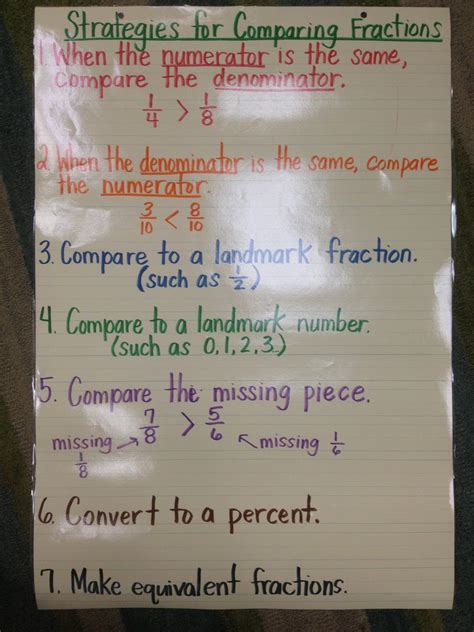 Strategies for Comparing Fractions
1. When the numerator is the same,
compare the denominator.
1/4 > 1/8
2. When the denominator is the same, compare
the numerator.
3/10 < 8/10
3. Compare to a landmark fraction.
(such as 1/2)
4. Compare to a landmark number.
(such as 0,1,2,3.)
5. Compare the missing piece.
7/8 > 5/6
missing 1/8
missing 1/6
6. Convert to a percent.
7. Make equivalent fractions.